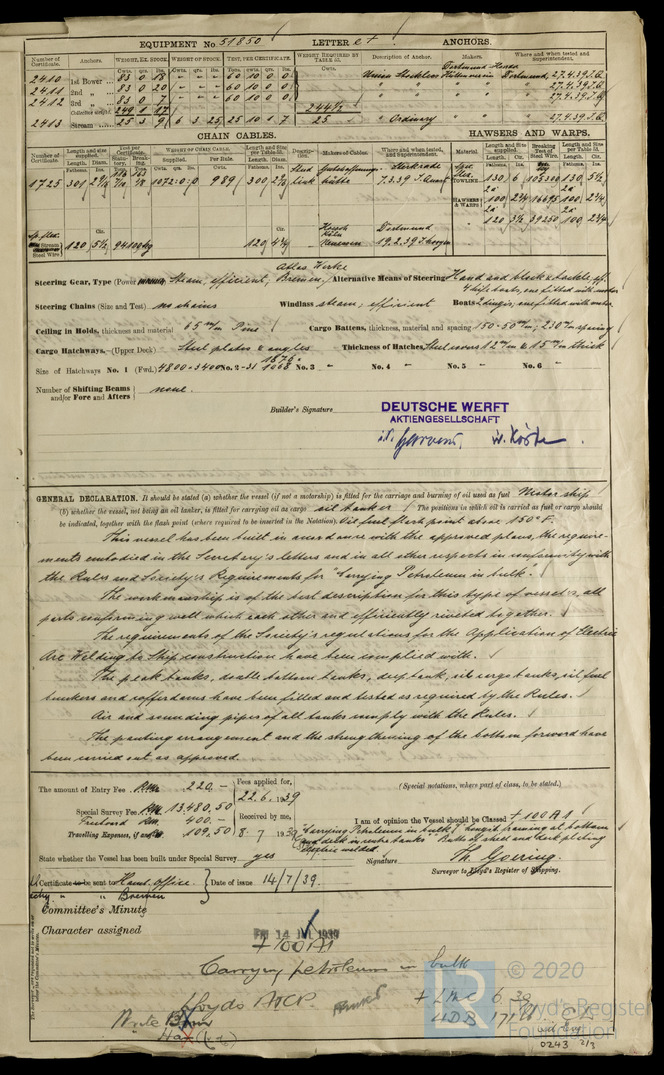 EQUIPMENT No. 51850 LETTER et ANCHORS.
Number of Certificate. Anchors. WEIGHT, EX. STOCK. WEIGHT OF STOCK. TEST, PER CERTIFICATE. WEIGHT REQUIRED BY TABLE 53. Description of Anchor. Makers. Where and when tested and Superintendent.
Cwts. qrs. lbs. Cwts. qrs. lbs. Cwts.
2410 1st Bower 83 0 18 - - - 60 10 0 0 Union Stockless Dortmund Hoerder Hüttenverein Dortmund, 27.4.39.
2411 2nd „ 83 0 20 - - - 60 10 0 0 27.4.39.
2412 3rd „ 83 0 7 60 10 0 0 27.4.39.
Collective weight 249 1 17 244½
2413 Stream 25 3 9 6 3 25 25 10 1 7 25 Ordinary 27.4.39.
CHAIN CABLES. HAWSERS AND WARPS.
Number of Certificate. Length and size supplied. Test per Certificate. WEIGHT OF CHAIN CABLE. Length and size per Table 53. Description. Makers of Cables. Where and when tested, and Superintendent. Material. Length and size supplied. Breaking Test of Steel Wire. Length and Size per Table 53.
Fathoms. Diam. Supplied. Per Rule. Fathoms. Diam. Fathoms. Ins. Cir.
1725 301 1072-0-0 989 300 Stud link Gutehoffnungshütte Sterkrade 7.3.39 TOWLINE 130 6 105300 130 5½
HAWSERS & WARPS 100 2¾ 16695 100 2¼
120 3½ 39250 100 2¾
Stream Steel Wire 120 5½ 94100kg 120 4¾ Dortmund 19.2.39
Steering Gear, Type (Power) Steam, efficient, Atlas Werke Bremen, Alternative Means of Steering Hand and block & tackle eff.
4 lifeboats, one fitted with motor
Steering Chains (Size and Test) no chains Windlass steam, efficient Boats 2 dingis, one fitted with motor
Ceiling in Holds, thickness and material 65 m/m Pine Cargo Battens, thickness, material and spacing 150-50 m/m; 230 m/m spacing
Cargo Hatchways.—(Upper Deck) Steel plates & angles Thickness of Hatches, Steel covers 12 m/m & 15 m/m thick
Size of Hatchways No. 1 (Fwd.) 4800 x 3400 No. 2-31 1876 x 1068 No. 3 „ No. 4 „ No. 5 „ No. 6 „
Number of Shifting Beams and/or Fore and Afters none.
Builder's Signature DEUTSCHE WERFT
AKTIENGESELLSCHAFT
GENERAL DECLARATION. It should be stated (a) whether the vessel (if not a motorship) is fitted for the carriage and burning of oil used as fuel Motor ship
(b) whether the vessel, not being an oil tanker, is fitted for carrying oil as cargo oil tanker (The positions in which oil is carried as fuel or cargo should
be indicated, together with the flash point (where required to be inserted in the Notation). Oil fuel flash point above 150° F.
This vessel has been built in accordance with the approved plans, the require-
ments embodied in the Secretary's letters and in all other respects in conformity with
the Rules and Society's Requirements for "Carrying Petroleum in bulk".
The workmanship is of the best description for this type of vessels, all
parts conforming well which each other and efficiently riveted together.
The requirements of the Society's regulations for the Application of Electric
Arc Welding to Ship construction have been complied with.
The peak tanks, double bottom tanks, deep tank, oil cargo tanks, oil fuel
bunkers and cofferdams have been filled and tested as required by the Rules.
Air and sounding pipes of all tanks comply with the Rules.
The panting arrangement and the strengthening of the bottom forward have
been carried out as approved.
The amount of Entry Fee RM. 220,— Fees applied for, 22.6.1939 (Special notations, where part of class, to be stated.)
Special Survey Fee RM. 13480,50
Freeboard RM. 400,— Received by me, I am of opinion the Vessel should be Classed +100A1
Travelling Expenses, if any RM. 109,50 8-7 1939 "Carrying Petroleum in bulk" Longit. framing at bottom
and deck in centre tanks" Butts of shell and deck plating
electric welded.
State whether the Vessel has been built under Special Survey yes Signature Th. Goering.
Surveyor to Lloyd's Register of Shipping.
Certificate to be sent to Hamb. office. Date of issue 14/7/39.
Copy „ „ Bremen
Committee's Minute
Character assigned FRI 14 JUL 1939
+100A1
Carrying petroleum in bulk
Lloyds A&CP. + LMC 6.39
Write DB 171
© 2020
Lloyd's Register
Foundation
0243 2/3